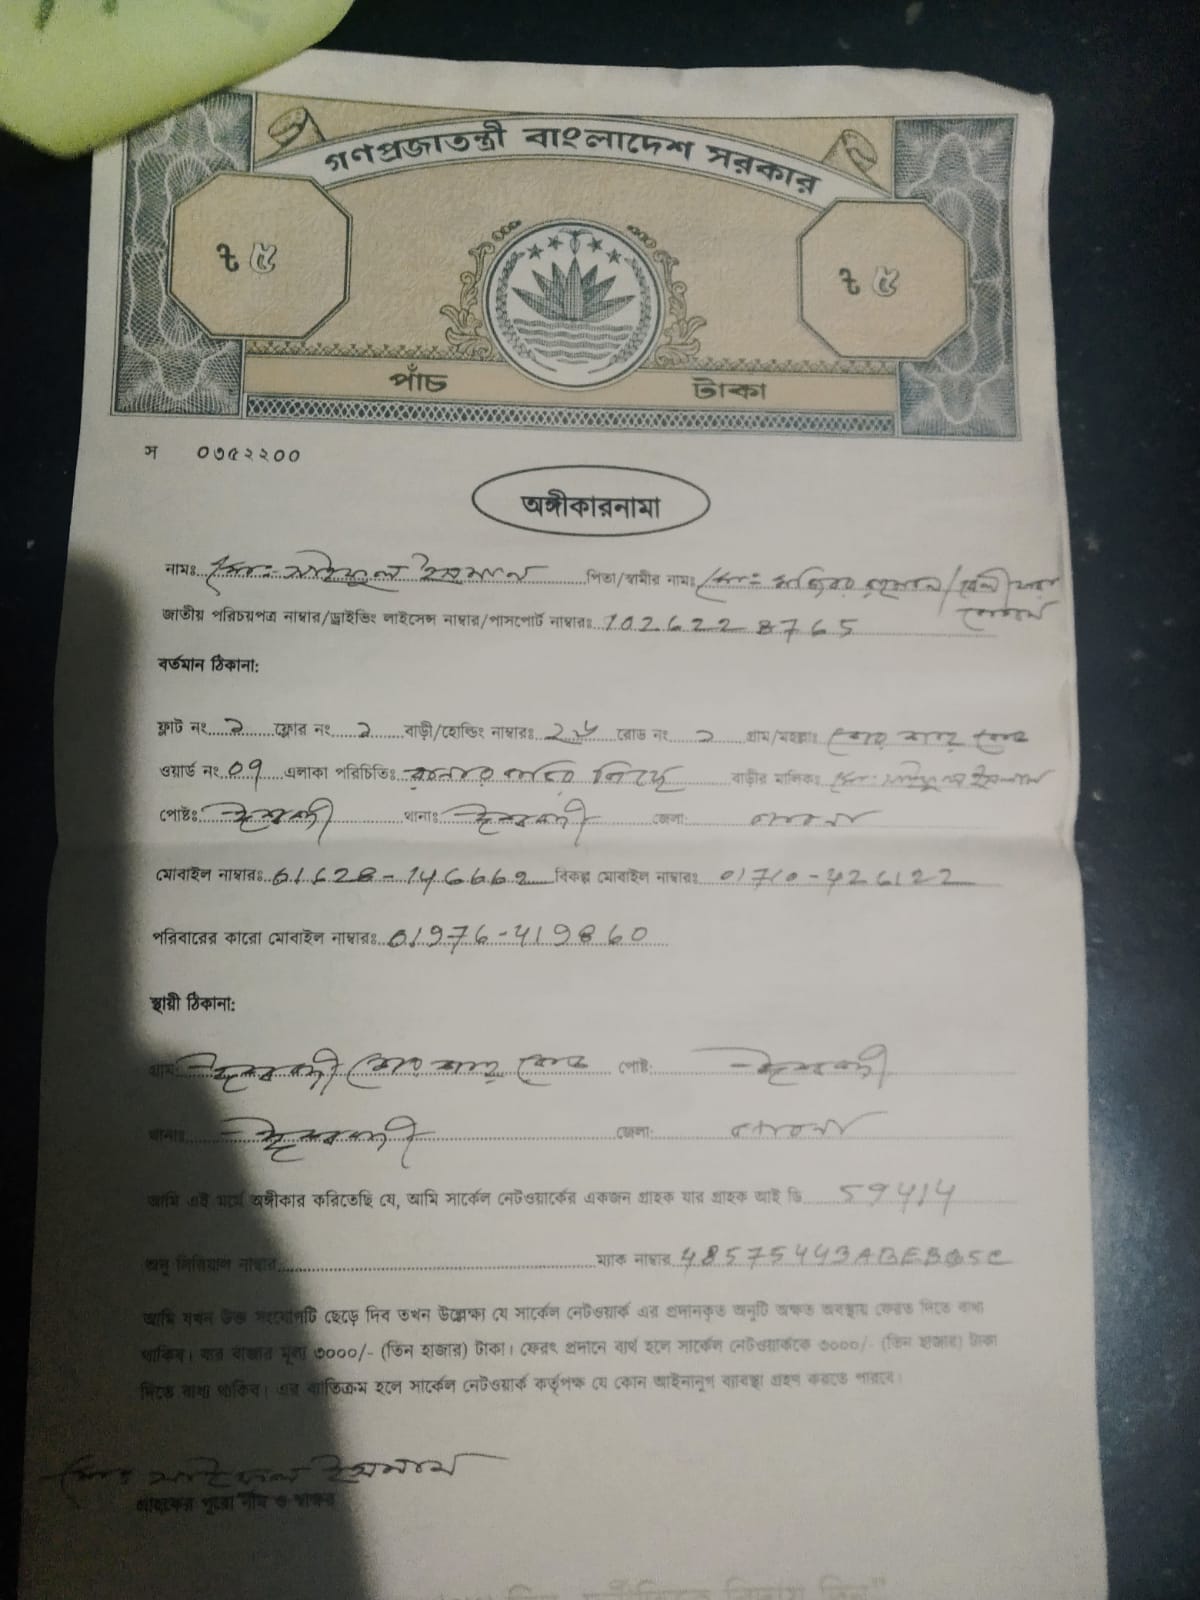 গণপ্রজাতন্ত্রী বাংলাদেশ সরকার
৳ ৫ ৳ ৫
পাঁচ টাকা
স ০৩৫২২০০
অঙ্গীকারনামা
নামঃ মোঃ সাইফুল ইসলাম পিতা/স্বামীর নামঃ মোঃ মজিবর রহমান/
জাতীয় পরিচয়পত্র নাম্বার/ড্রাইভিং লাইসেন্স নাম্বার/পাসপোর্ট নাম্বারঃ 1026228765
বর্তমান ঠিকানা:
ফ্লাট নং ফ্লোর নং বাড়ী/হোল্ডিং নাম্বারঃ রোড নং গ্রাম/মহল্লাঃ শের শাহ রোড
ওয়ার্ড নং 09 এলাকা পরিচিতিঃ বাড়ীর মালিকঃ মোঃ সাইফুল ইসলাম
পোষ্টঃ ঈশ্বরদী থানাঃ ঈশ্বরদী জেলা: পাবনা
মোবাইল নাম্বারঃ 01628-146662 বিকল্প মোবাইল নাম্বারঃ 01710-426122
পরিবারের কারো মোবাইল নাম্বারঃ 01976-419860
স্থায়ী ঠিকানা:
গ্রাম: ঈশ্বরদী শের শাহ রোড পোষ্ট: ঈশ্বরদী
থানাঃ ঈশ্বরদী জেলা: পাবনা
আমি এই মর্মে অঙ্গীকার করিতেছি যে, আমি সার্কেল নেটওয়ার্কের একজন গ্রাহক যার গ্রাহক আই ডি 59414
অনু সিরিয়াল নাম্বার ম্যাক নাম্বার 48575443ABEB65C
আমি যখন উক্ত সংযোগটি ছেড়ে দিব তখন উল্লেক্ষ্য যে সার্কেল নেটওয়ার্ক এর প্রদানকৃত অনুটি অক্ষত অবস্থায় ফেরত দিতে বাধ্য
থাকিব। যার বাজার মূল্য ৩০০০/- (তিন হাজার) টাকা। ফেরৎ প্রদানে ব্যর্থ হলে সার্কেল নেটওয়ার্ককে ৩০০০/- (তিন হাজার) টাকা
দিতে বাধ্য থাকিব। এর ব্যতিক্রম হলে সার্কেল নেটওয়ার্ক কর্তৃপক্ষ যে কোন আইনানুগ ব্যাবস্থা গ্রহণ করতে পারবে।
মোঃ সাইফুল ইসলাম
গ্রাহকের পুরো নাম ও স্বাক্ষর